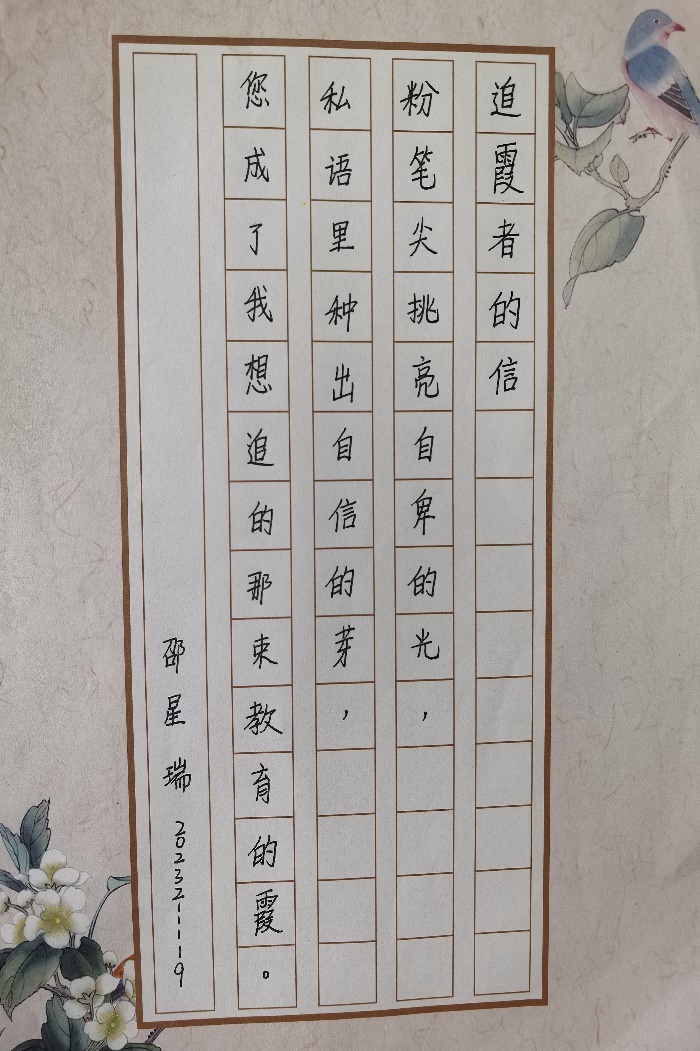 追霞者的信
粉笔尖挑亮自卑的光，
私语里种出自信的芽，
您成了我想追的那束教育的霞。
邵星瑞 2023211119